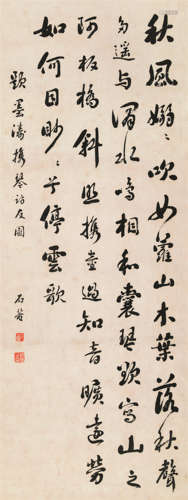 秋風嫋嫋吹女蘿山木葉落秋聲
多遙与澗水鳴相和囊琴欲寫山之
阿板橋斜照攜壺過知音曠遠勞
如何目眇眇兮停雲歌
題墨濤攜琴訪友圖
石菴